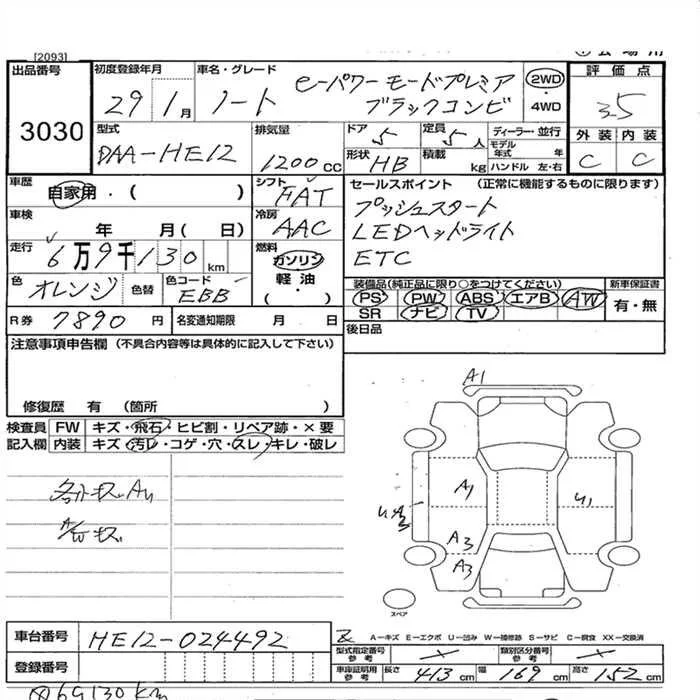 [2093]
出品番号 3030
初度登録年月 29 1月
車名・グレード ノート e-パワー モードプレミア
ブラックコンビ
2WD・4WD
評価点 3.5
外装 C 内装 C
型式 DAA-HE12
排気量 1200cc
ドア 5 定員 5人
形状 HB 積載 kg
ディーラー・並行
モデル年式 年
ハンドル 左・右
車歴 自家用・( )
シフト FAT
車検 年 月(日)
冷房 AAC
走行 6万9千130km
燃料 ガソリン・軽油・( )
色 オレンジ 色替 色コード EBB
R券 7890円 名変通知期限 月 日
セールスポイント (正常に機能するものに限ります)
プッシュスタート
LEDヘッドライト
ETC
装備品(純正品に限り○をつけてください)
PS PW ABS エアB AW
SR ナビ TV
新車保証書 有・無
後日品
注意事項申告欄 (不具合内容等は具体的に記入して下さい)
修復歴 有 (箇所 )
検査員記入欄
FW キズ・飛石・ヒビ割・リペア跡・×要
内装 キズ・汚レ・コゲ・穴・スレ・キレ・破レ
A1
A1
U1
A3
A3
スペア
車台番号 HE12-024492
登録番号
A-キズ E-エクボ U-凹み W-補修跡 S-サビ C-腐食 XX-交換済
型式指定番号 参考
類別区分番号 参考
車庫証明用 参考 長さ 413cm 幅 169cm 高さ 152cm
69130km